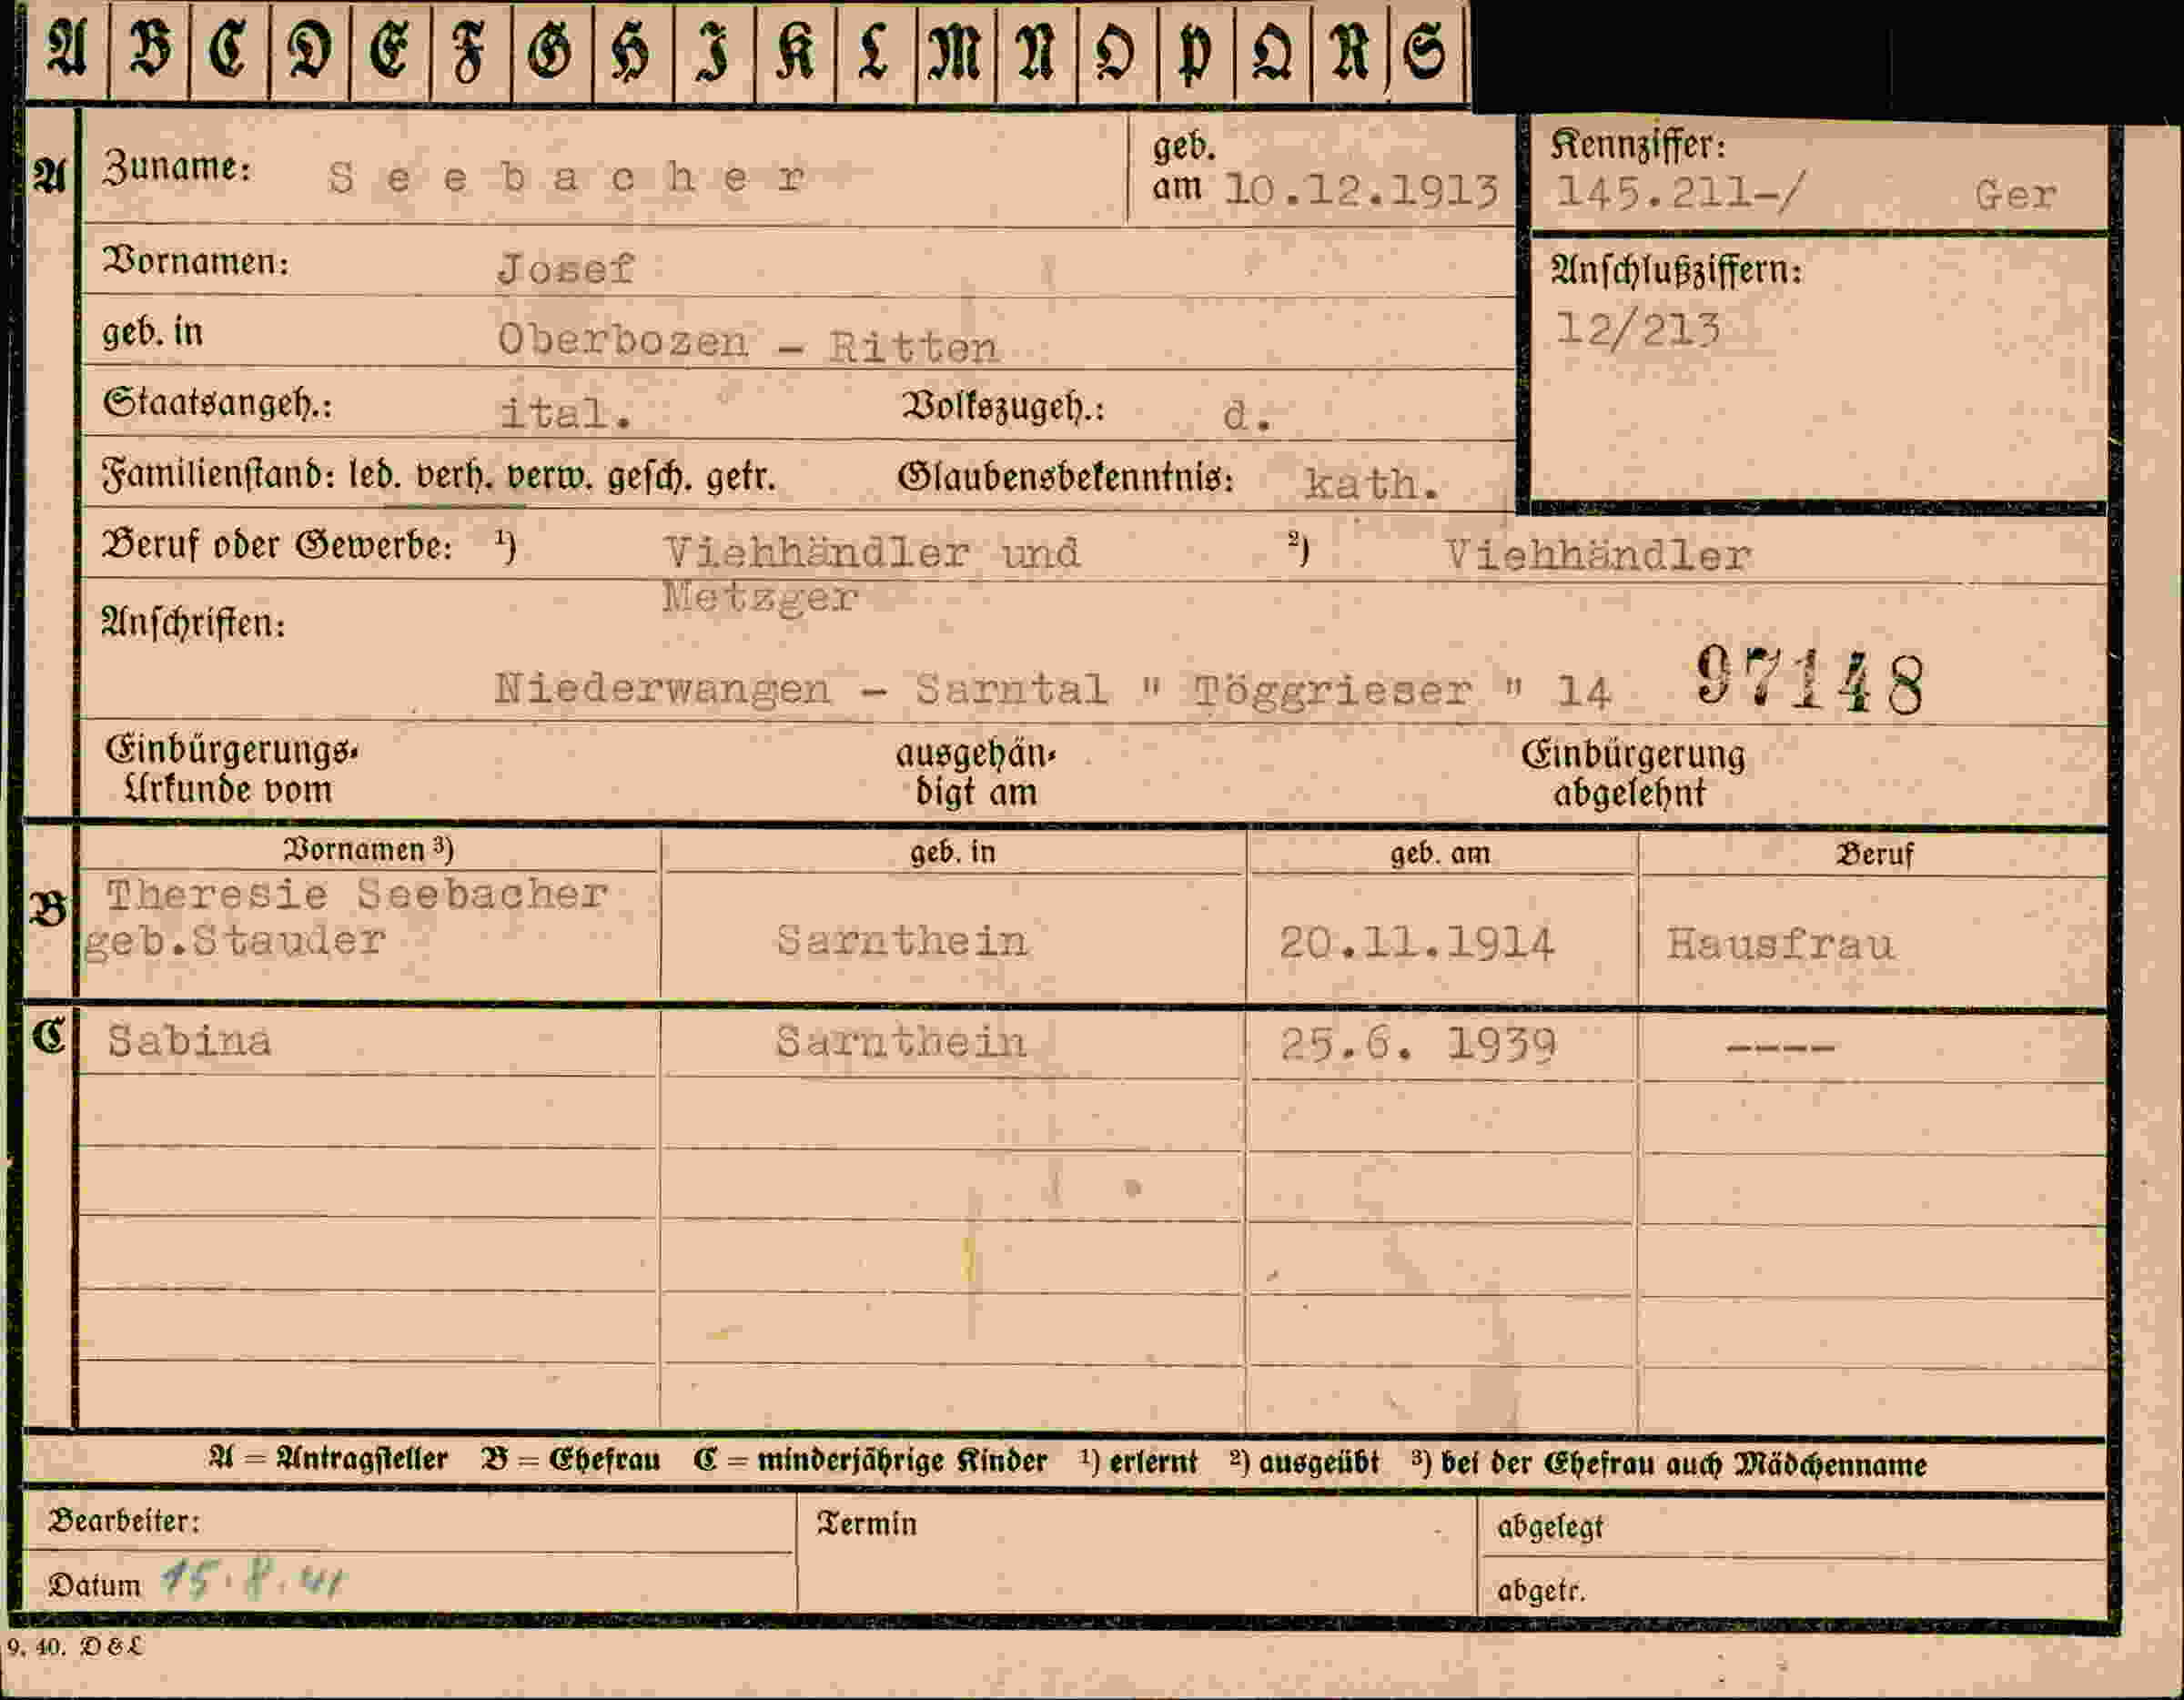 A B C D E F G H I K L M N O P Q R S
A Zuname: Seebacher geb. am 10.12.1913
Kennziffer: 145.211-/ Ger
Vornamen: Josef
Anschlußziffern:
12/213
geb. in Oberbozen - Ritten
Staatsangeh.: ital. Volkszugeh.: d.
Familienstand: led. verh. verw. gesch. getr. Glaubensbekenntnis: kath.
Beruf oder Gewerbe: 1) Viehhändler und 2) Viehhändler
Metzger
Anschriften:
Niederwangen - Sarntal " Töggrieser " 14 97148
Einbürgerungs- ausgehän- Einbürgerung
Urkunde vom digt am abgelehnt
Vornamen 3) geb. in geb. am Beruf
B Theresie Seebacher
geb.Stauder Sarnthein 20.11.1914 Hausfrau
C Sabina Sarnthein 25.6. 1939 ----
A = Antragsteller B = Ehefrau C = minderjährige Kinder 1) erlernt 2) ausgeübt 3) bei der Ehefrau auch Mädchenname
Bearbeiter: Termin abgelegt
Datum 15.8.41 abgetr.
9. 40. D & L